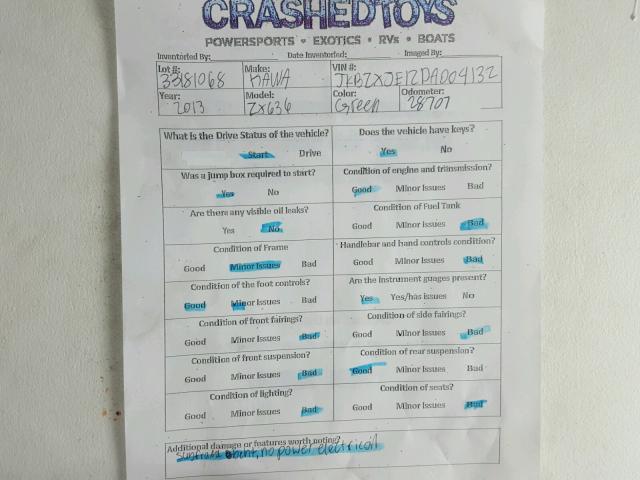 CRASHEDTOYS
POWERSPORTS • EXOTICS • RVs • BOATS
Inventoried By: Date Inventoried: Imaged By:
Lot #: Make: VIN #:
33181068 KAWA JKBZXJE12DA004132
Year: Model: Color: Odometer:
2013 ZX636 Green 28707
What is the Drive Status of the vehicle? Does the vehicle have keys?
Start Drive Yes No
Was a jump box required to start? Condition of engine and transmission?
Yes No Good Minor Issues Bad
Are there any visible oil leaks? Condition of Fuel Tank
Yes No Good Minor Issues Bad
Condition of Frame Handlebar and hand controls condition?
Good Minor Issues Bad Good Minor Issues Bad
Condition of the foot controls? Are the instrument guages present?
Good Minor Issues Bad Yes Yes/has issues No
Condition of front fairings? Condition of side fairings?
Good Minor Issues Bad Good Minor Issues Bad
Condition of front suspension? Condition of rear suspension?
Good Minor Issues Bad Good Minor Issues Bad
Condition of lighting? Condition of seats?
Good Minor Issues Bad Good Minor Issues Bad
Additional damage or features worth noting?
bent, no power electrical